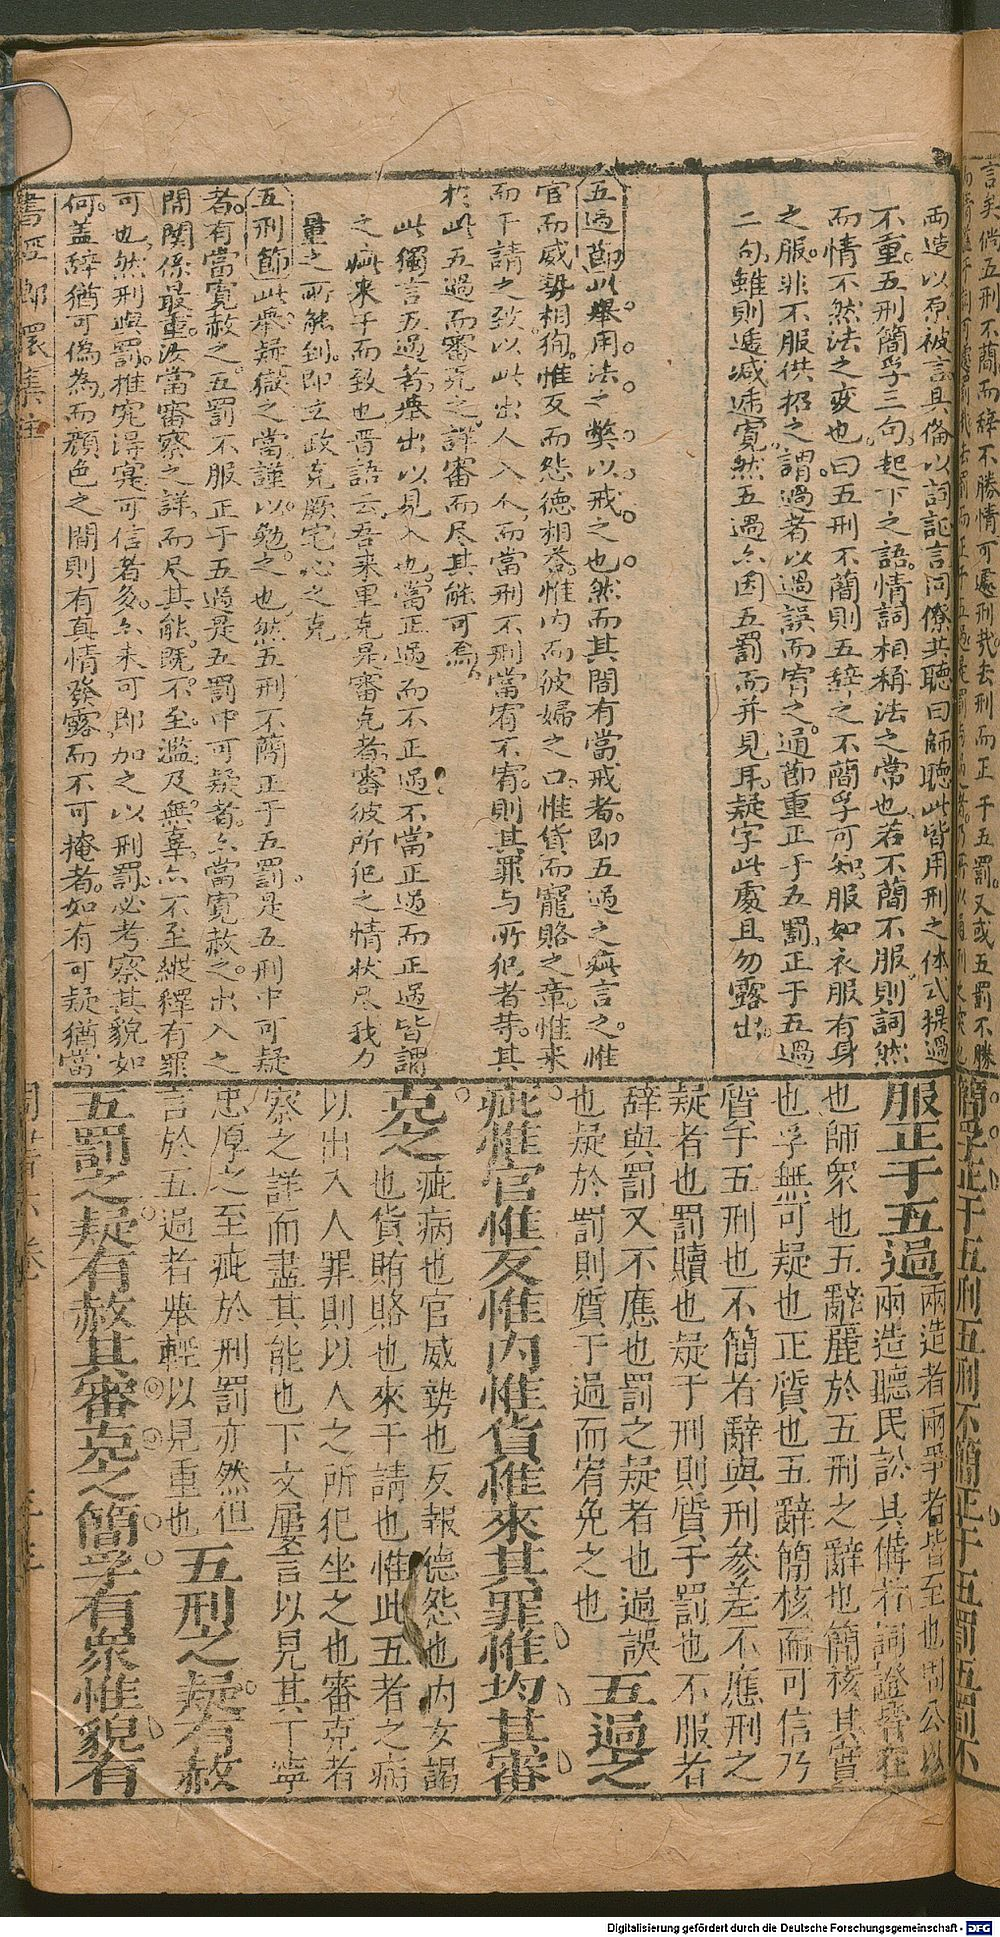 兩造以原被言具倫以詞証言同僚共聽曰師聽此皆用刑之体式提過
不重五刑簡孚三句起下之語情詞相稱法之常也若不簡不服則詞然
而情不然法之変也曰五刑不簡則五辞之不簡孚可知服如衣服有身
之服非不服供招之謂過者以過誤而宥之通節重正于五罰正于五過
二句雖則遞减遞寛然五過亦因五罰而并見耳疑字此處且勿露出
五過節此舉用法之獘以戒之也然而其間有當戒者即五過之疵言之惟
官而威勢相狥惟反而怨德相答惟内而彼婦之口惟貨而寵賂之章惟来
而干請之致以此出人入人而當刑不刑當宥不宥則其罪与所犯者等其
於此五過而審克之詳審而尽其能可焉
此獨言五過者舉出以見入也當正過而不正過不當正過而正過皆謂
之疵来干而致也晋語云吾来里克是審克者審彼所犯之情状尽我力
量之所能到即立政克厥宅心之克
五刑節此舉疑獄之當謹以勉之也然五刑不簡正于五罰是五刑中可疑
者有當寛赦之五罰不服正于五過是五罰中可疑者亦當寛赦之出入之
間関係最重汝當審察之詳而尽其能既不至濫及無辜亦不至縱釋有罪
可也然刑與罰推究得寔可信者多亦未可即加之以刑罰必考察其貌如
何盖辞猶可偽為而顔色之間則有真情發露而不可掩者如有可疑猶當
服正于五過兩造者兩爭者皆至也周公以
兩造聽民訟具備者詞證皆在
也師衆也五辭麗於五刑之辭也簡核其實
也孚無可疑也正質也五辭簡核而可信乃
質于五刑也不簡者辭與刑參差不應刑之
疑者也罰贖也疑于刑則質于罰也不服者
辭與罰又不應也罰之疑者也過誤
也疑於罰則質于過而宥免之也五過之
疵惟官惟反惟内惟貨惟來其罪惟均其審
克之疵病也官威勢也反報德怨也内女謁
也貨賄賂也來干請也惟此五者之病
以出入人罪則以人之所犯坐之也審克者
察之詳而盡其能也下文屢言以見其丁寧
忠厚之至疵於刑罰亦然但
言於五過者舉輕以見重也五刑之疑有赦
五罰之疑有赦其審克之簡孚有衆惟貌有
Digitalisierung gefördert durch die Deutsche Forschungsgemeinschaft - DFG